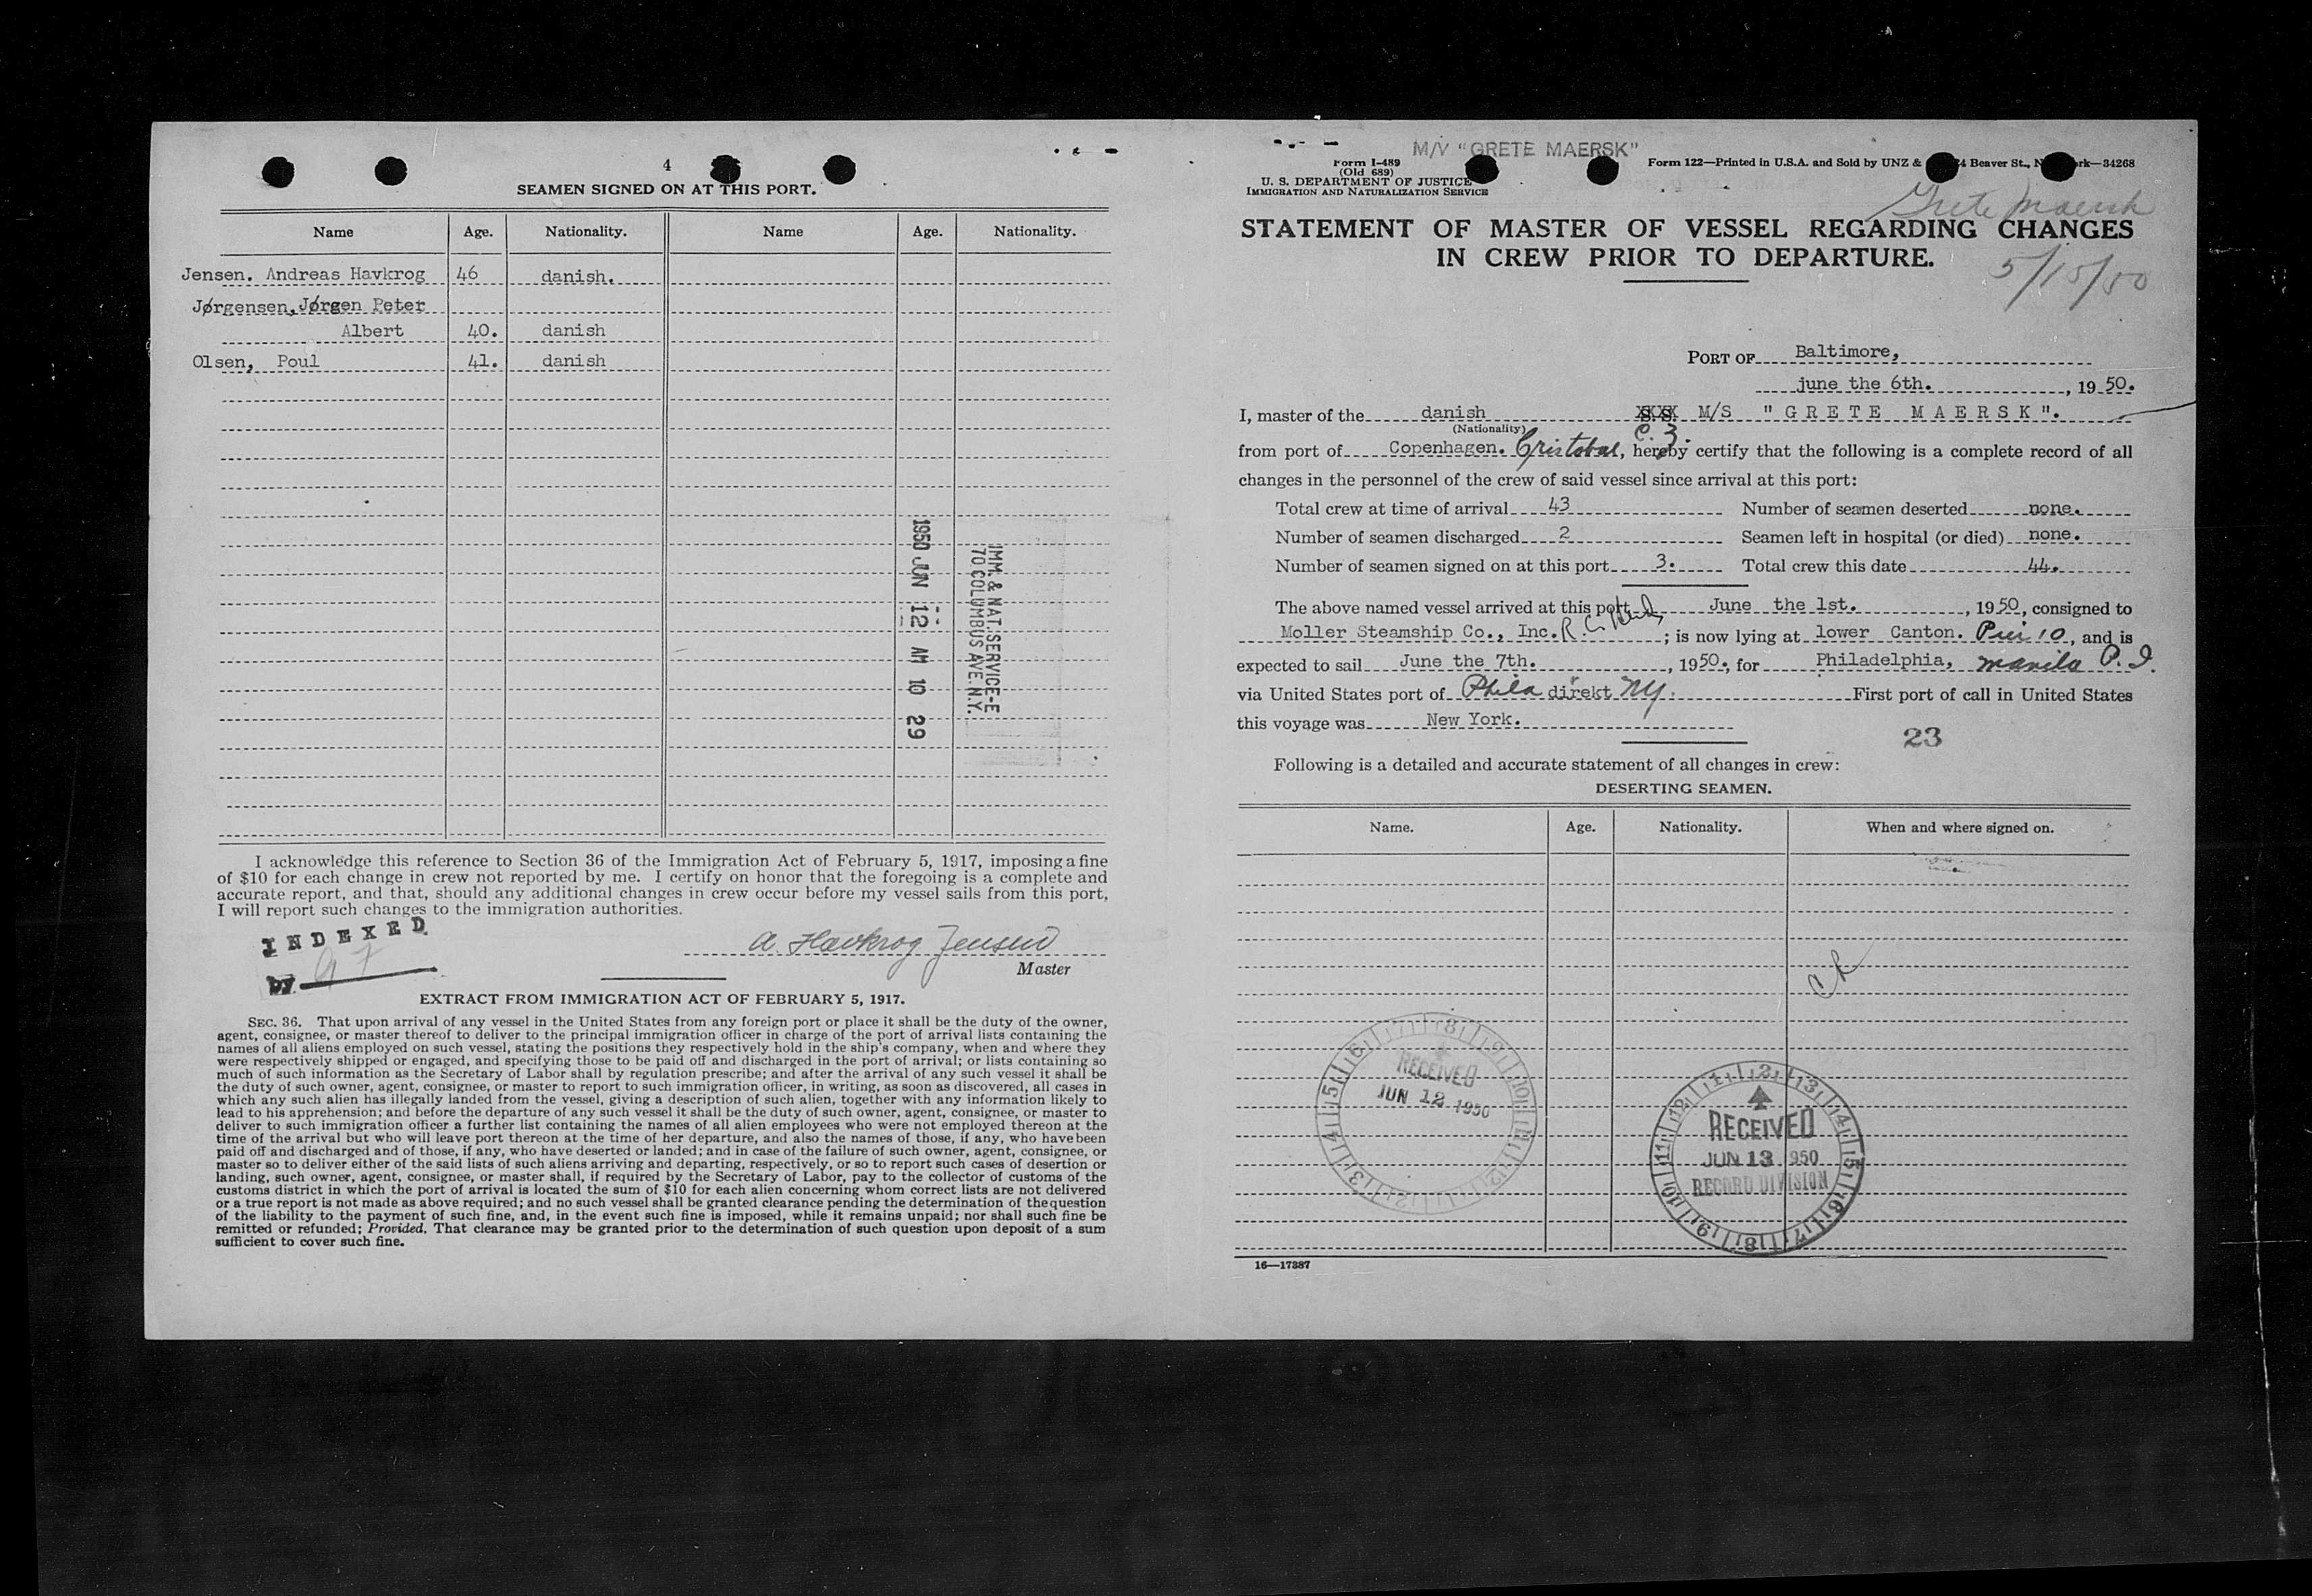 4
SEAMEN SIGNED ON AT THIS PORT.
Name Age. Nationality. Name Age. Nationality.
Jensen. Andreas Havkrog 46 danish.
Jørgensen, Jørgen Peter
Albert 40. danish
Olsen, Poul 41. danish
1950 JUN 12 AM 10 29
IMM. & NAT. SERVICE-E
70 COLUMBUS AVE. N.Y.
I acknowledge this reference to Section 36 of the Immigration Act of February 5, 1917, imposing a fine
of $10 for each change in crew not reported by me. I certify on honor that the foregoing is a complete and
accurate report, and that, should any additional changes in crew occur before my vessel sails from this port,
I will report such changes to the immigration authorities.
INDEXED
by
A. Havkrog Jensen
Master
EXTRACT FROM IMMIGRATION ACT OF FEBRUARY 5, 1917.
SEC. 36. That upon arrival of any vessel in the United States from any foreign port or place it shall be the duty of the owner,
agent, consignee, or master thereof to deliver to the principal immigration officer in charge of the port of arrival lists containing the
names of all aliens employed on such vessel, stating the positions they respectively hold in the ship's company, when and where they
were respectively shipped or engaged, and specifying those to be paid off and discharged in the port of arrival; or lists containing so
much of such information as the Secretary of Labor shall by regulation prescribe; and after the arrival of any such vessel it shall be
the duty of such owner, agent, consignee, or master to report to such immigration officer, in writing, as soon as discovered, all cases in
which any such alien has illegally landed from the vessel, giving a description of such alien, together with any information likely to
lead to his apprehension; and before the departure of any such vessel it shall be the duty of such owner, agent, consignee, or master to
deliver to such immigration officer a further list containing the names of all alien employees who were not employed thereon at the
time of the arrival but who will leave port thereon at the time of her departure, and also the names of those, if any, who have been
paid off and discharged and of those, if any, who have deserted or landed; and in case of the failure of such owner, agent, consignee, or
master so to deliver either of the said lists of such aliens arriving and departing, respectively, or so to report such cases of desertion or
landing, such owner, agent, consignee, or master shall, if required by the Secretary of Labor, pay to the collector of customs of the
customs district in which the port of arrival is located the sum of $10 for each alien concerning whom correct lists are not delivered
or a true report is not made as above required; and no such vessel shall be granted clearance pending the determination of the question
of the liability to the payment of such fine, and, in the event such fine is imposed, while it remains unpaid; nor shall such fine be
remitted or refunded; Provided, That clearance may be granted prior to the determination of such question upon deposit of a sum
sufficient to cover such fine.
M/V "GRETE MAERSK"
Form I-489
(Old 689)
U. S. DEPARTMENT OF JUSTICE
IMMIGRATION AND NATURALIZATION SERVICE
Form 122—Printed in U.S.A. and Sold by UNZ & 4 Beaver St., N rk—34268
Grete Maersk
STATEMENT OF MASTER OF VESSEL REGARDING CHANGES
IN CREW PRIOR TO DEPARTURE.
5/15/50
PORT OF Baltimore,
june the 6th. , 1950.
I, master of the danish S.S. M/S "GRETE MAERSK".
(Nationality) C.Z.
from port of Copenhagen. Cristobal, hereby certify that the following is a complete record of all
changes in the personnel of the crew of said vessel since arrival at this port:
Total crew at time of arrival 43 Number of seamen deserted none.
Number of seamen discharged 2 Seamen left in hospital (or died) none.
Number of seamen signed on at this port 3. Total crew this date 44.
The above named vessel arrived at this port June the 1st. , 1950, consigned to
Moller Steamship Co., Inc. ; is now lying at lower Canton. Pier 10, and is
expected to sail June the 7th. , 1950, for Philadelphia, manila P.I.
via United States port of Phila direkt NY. First port of call in United States
this voyage was New York.
23
Following is a detailed and accurate statement of all changes in crew:
DESERTING SEAMEN.
Name. Age. Nationality. When and where signed on.
RECEIVED
JUN 12 1950
RECEIVED
JUN 13 1950
RECORD DIVISION
16—17387